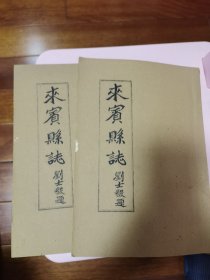 來賓縣誌
劉士毅題
來賓縣誌
劉士毅題